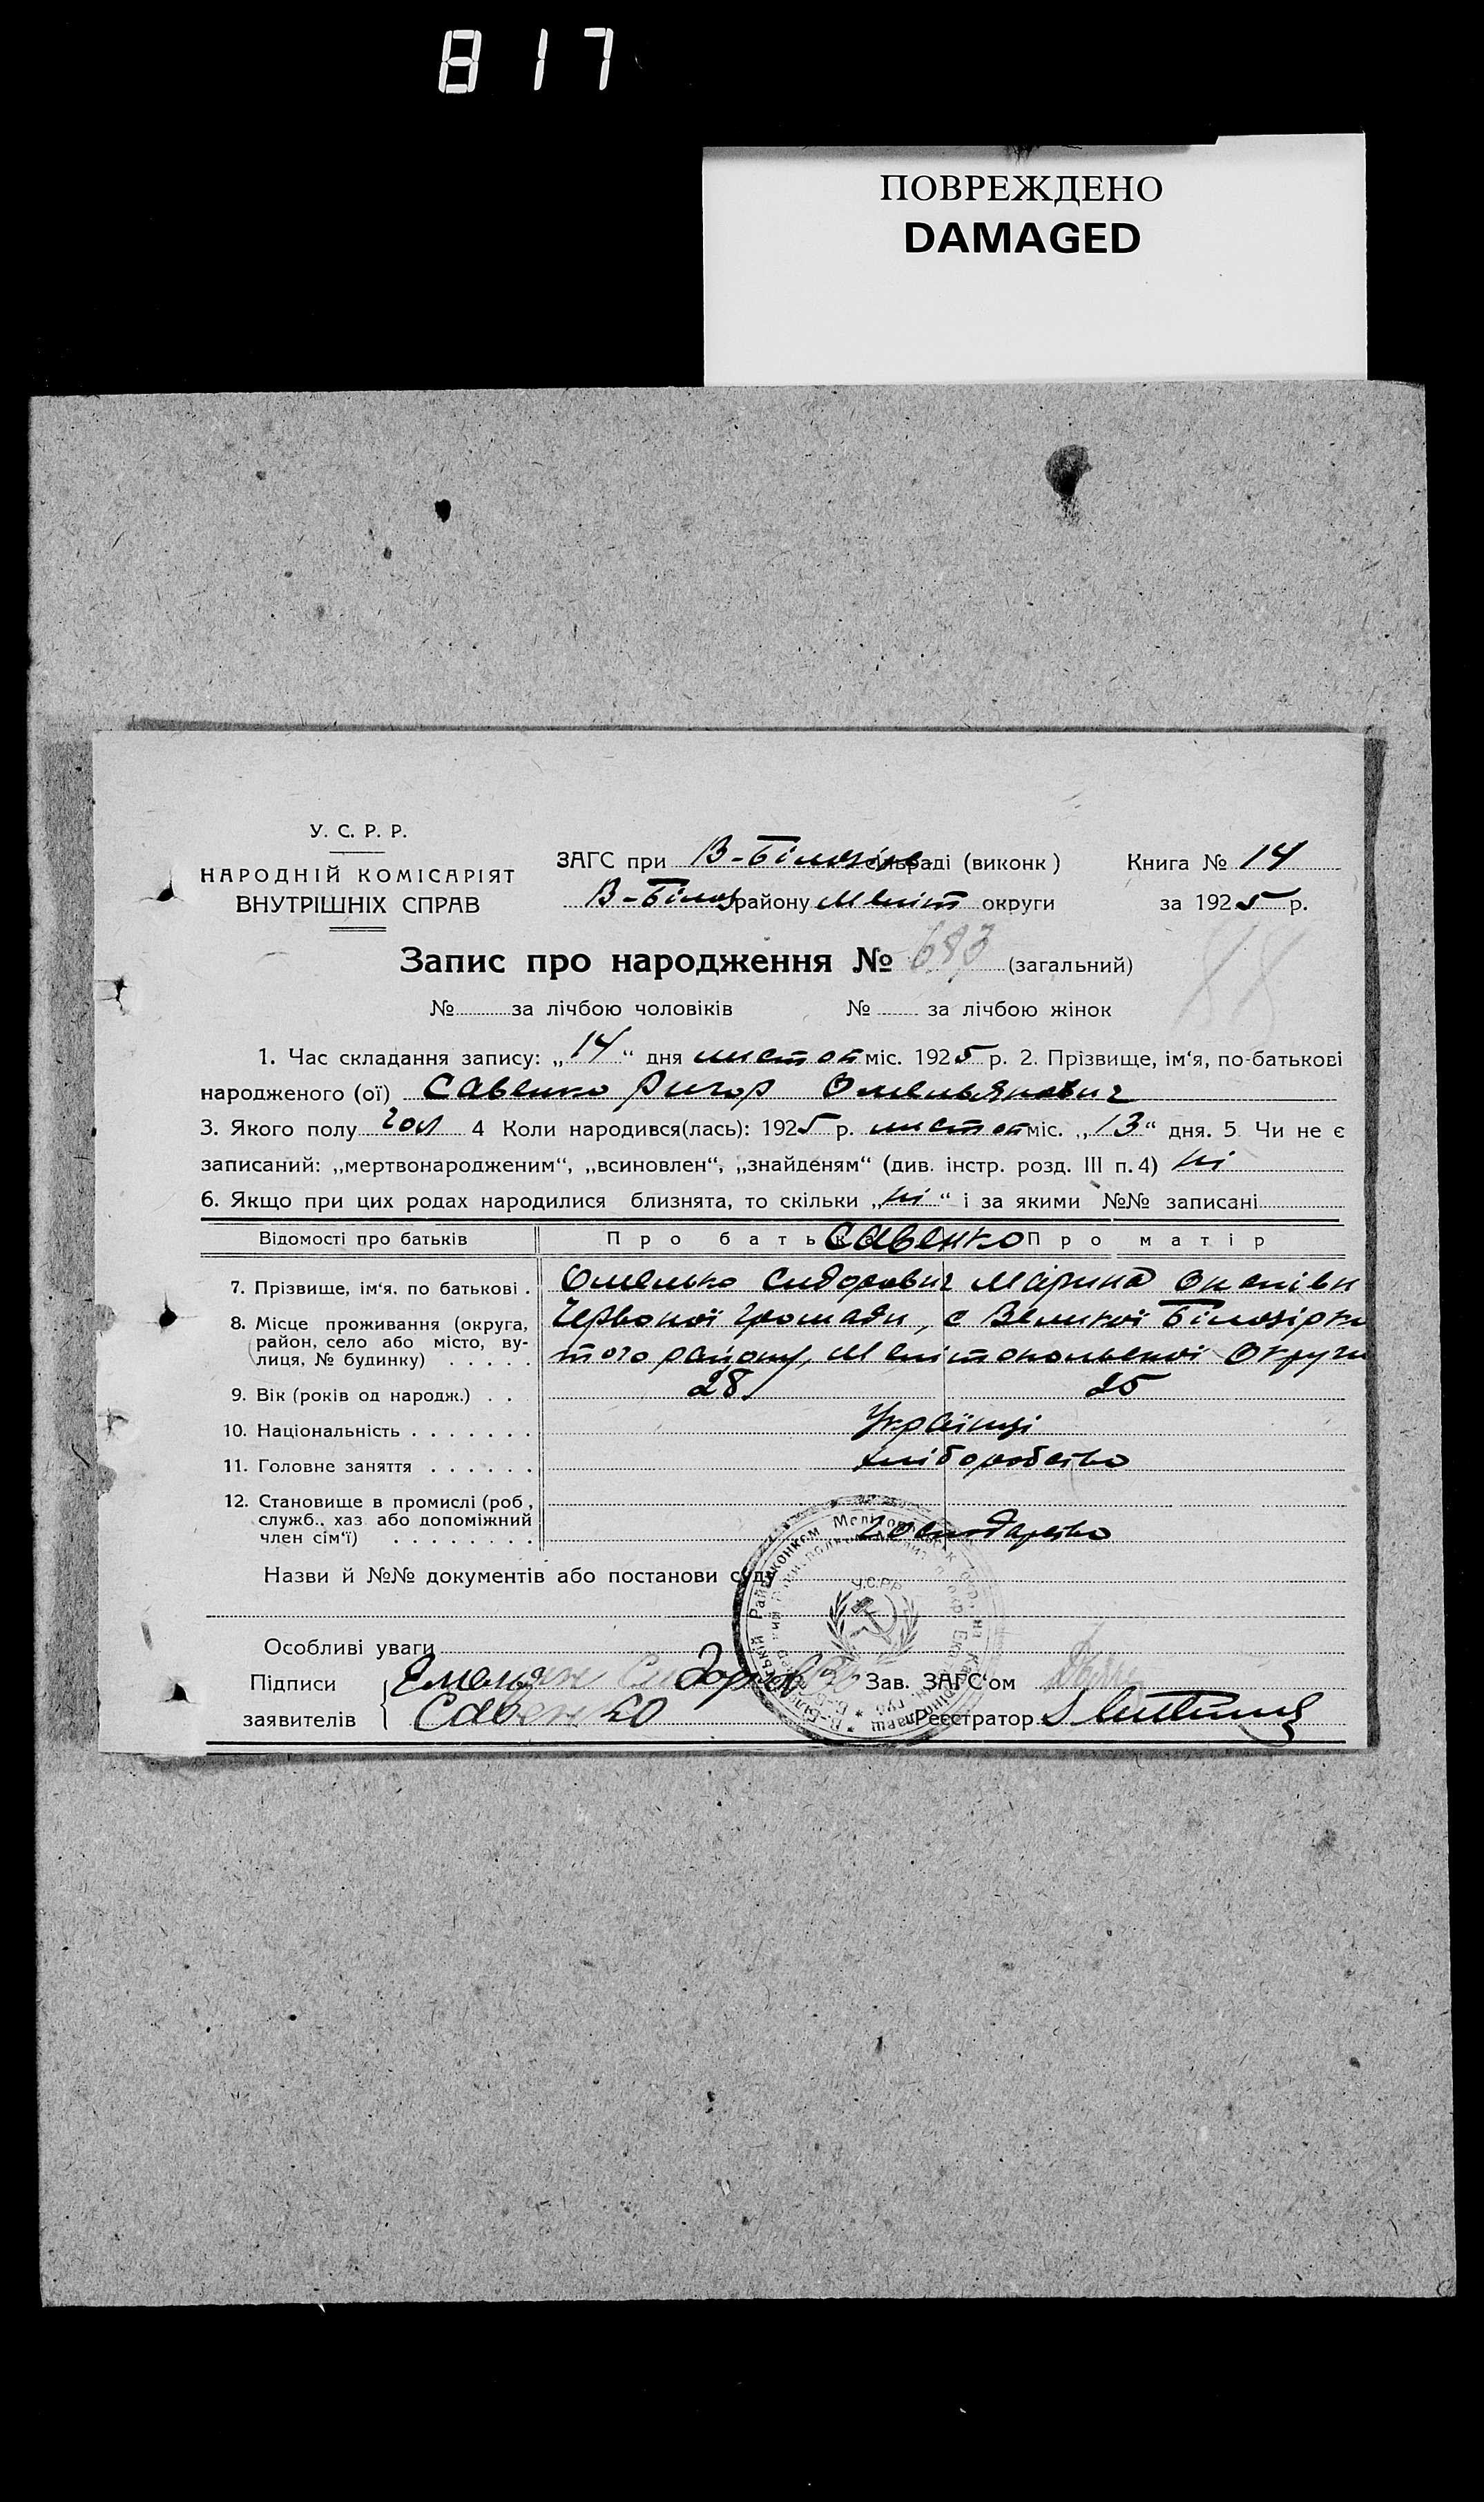 817
ПОВРЕЖДЕНО
DAMAGED
У. С. Р. Р.
НАРОДНІЙ КОМІСАРІЯТ
ВНУТРІШНІХ СПРАВ
ЗАГС при В-Білозірс сільраді (виконк)
Книга № 14
В-Білоз району Меліт округи
за 1925 р.
Запис про народження № 683 (загальний)
88
№ за лічбою чоловіків № за лічбою жінок
1. Час складання запису: „14“ дня листоп міс. 1925 р. 2. Прізвище, ім‘я, по-батькові
народженого (ої) Савенко Ригор Омельянович
3. Якого полу чол 4 Коли народився(лась): 1925 р. листоп міс. „13“ дня. 5 Чи не є
записаний: „мертвонародженим“, „всиновлен“, „знайденям“ (див. інстр. розд. III п. 4) ні
6. Якщо при цих родах народилися близнята, то скільки „ні“ і за якими №№ записані
Відомості про батьків Про батька Савенко Про матір
7. Прізвище, ім‘я, по батькові . Омелько Сидорович Марина
8. Місце проживання (округа, район, село або місто, вулиця, № будинку) Червоної громади, с Великої Білозірки
того району, Мелітопольської Округи
9. Вік (років од народж.) . . 28 25
10. Національність Українці
11. Головне заняття хліборобство
12. Становище в промислі (роб, служб., хаз або допоміжний член сім‘ї) господарство
Назви й №№ документів або постанови суду
У.С.Р.Р.
Особливі уваги
Підписи Емельян Сидоров Зав. ЗАГС‘ом
заявителів Савенко Реєстратор